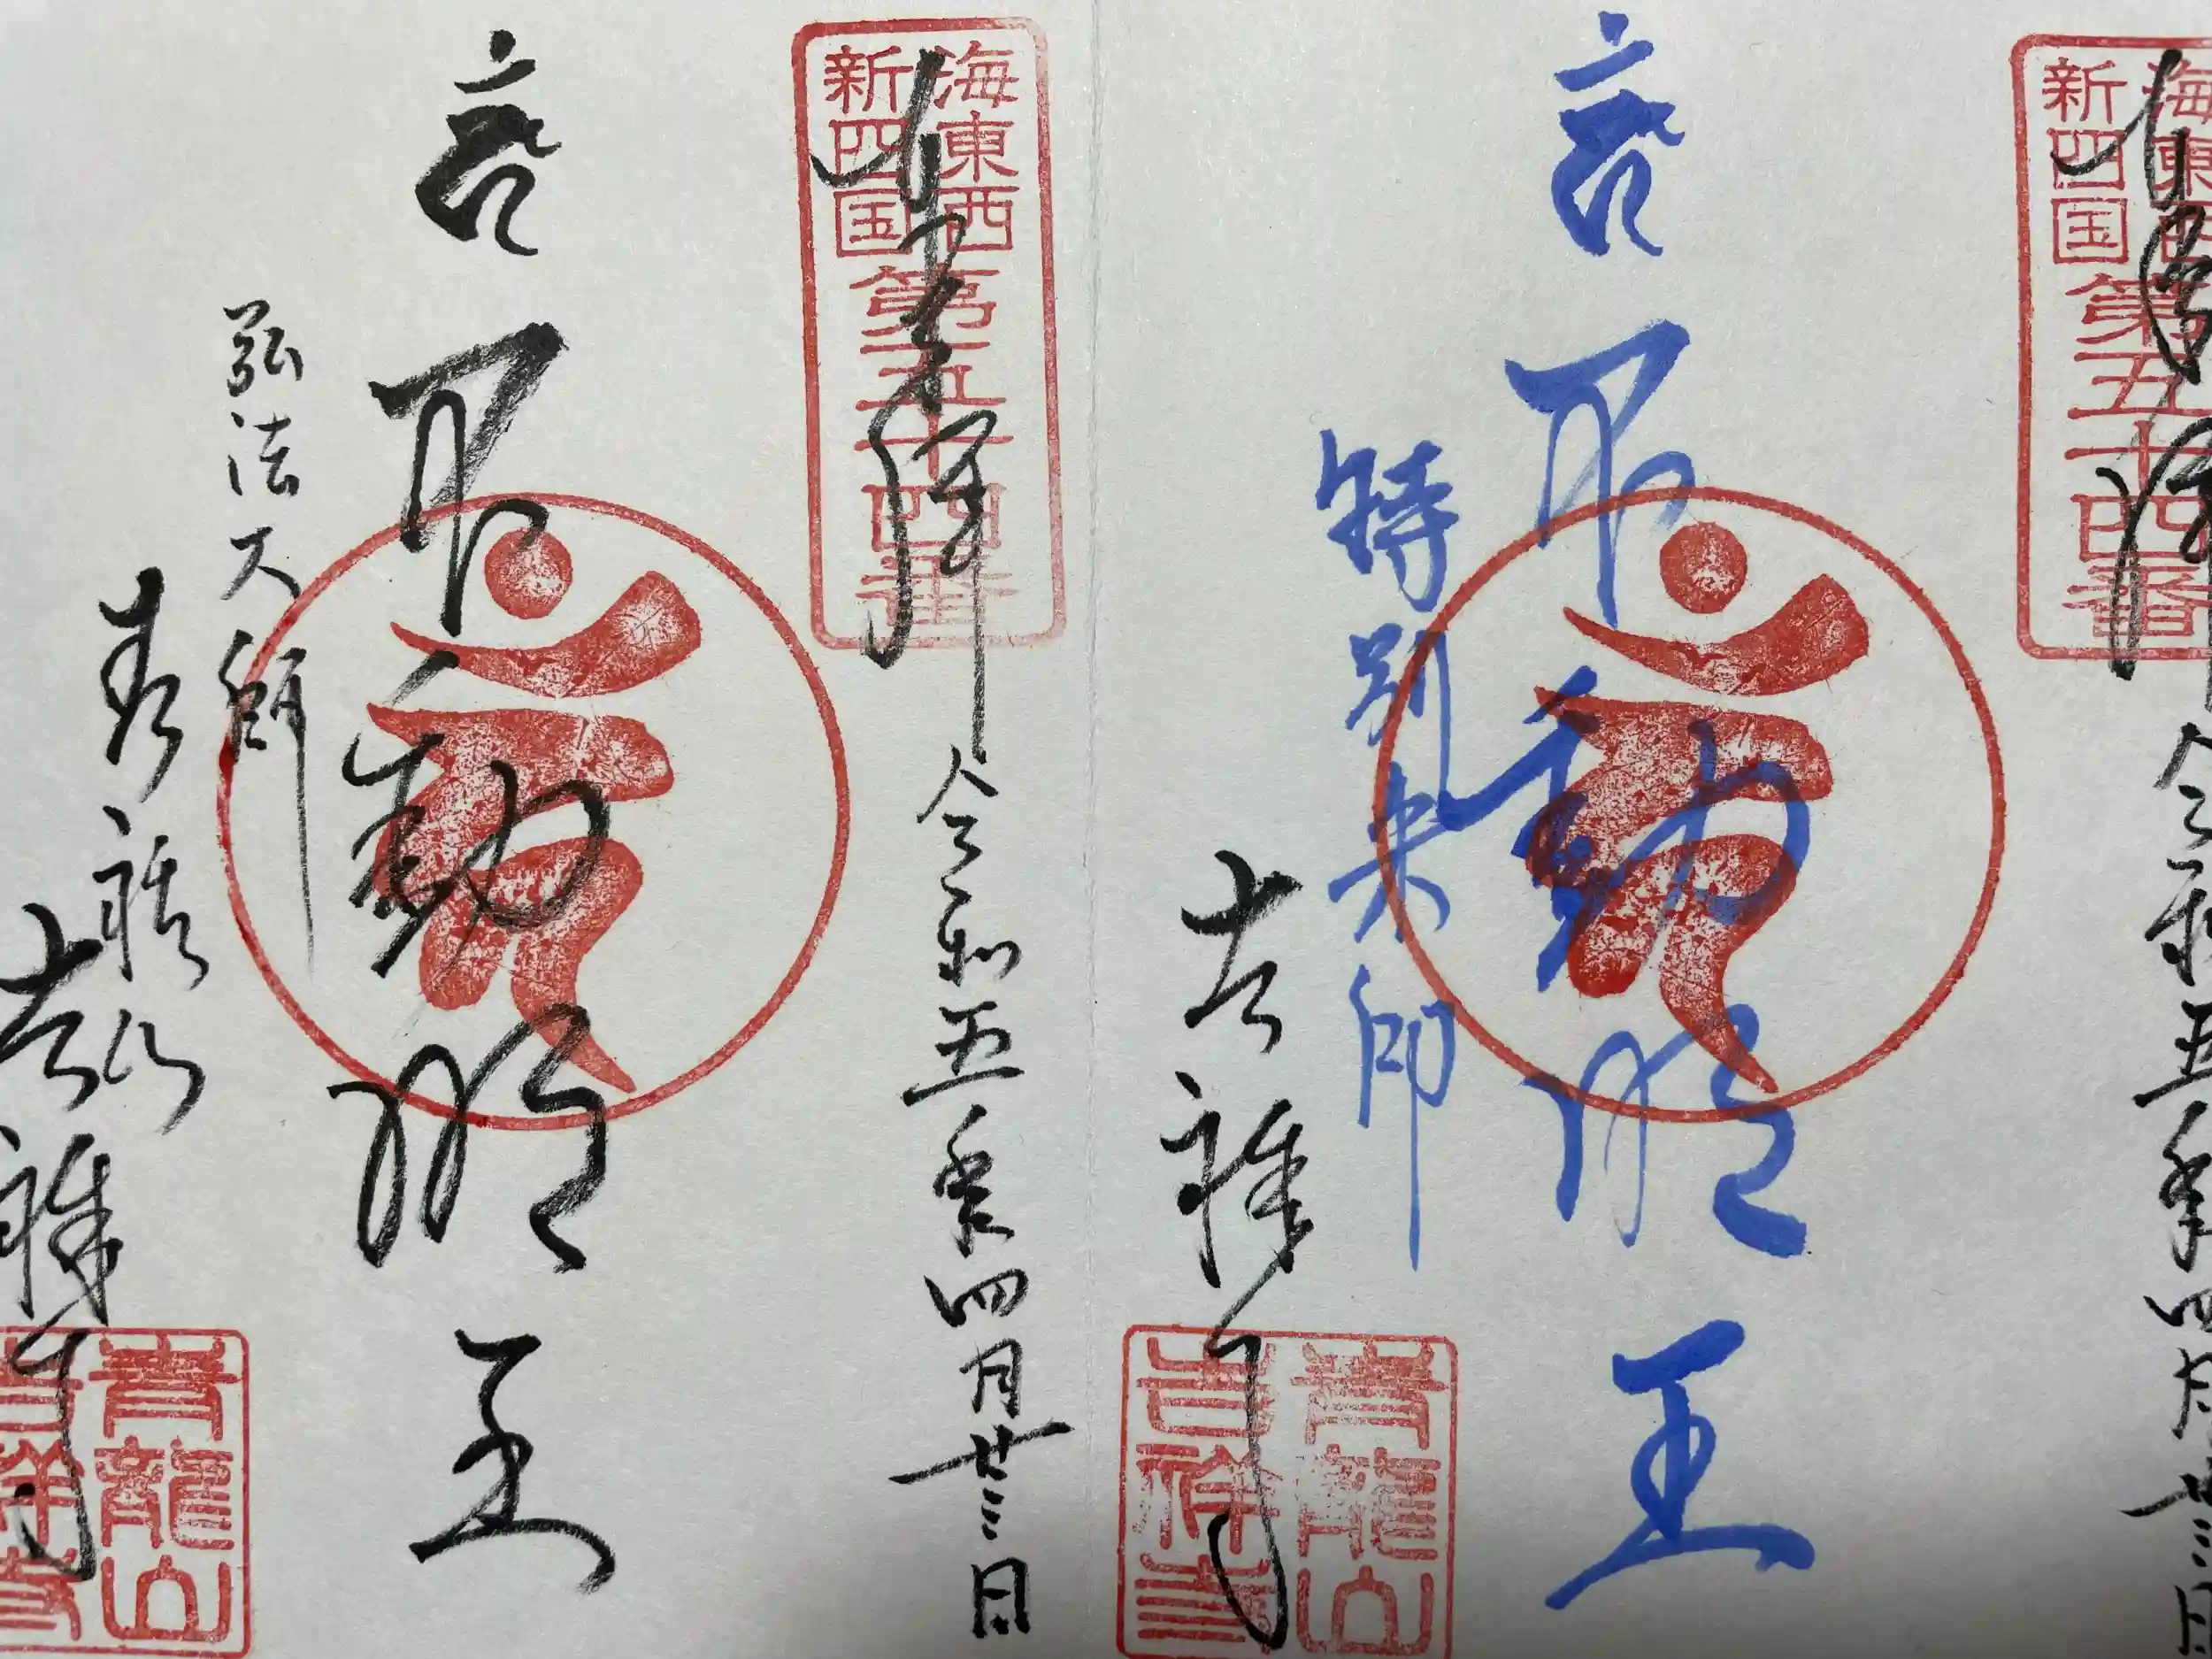 海東西
新四国
第五十四番
奉拝
令和五年四月廿三日
不動明王
特別朱印
吉祥寺
青龍山
吉祥寺
海東西
新四国
第五十四番
奉拝
令和五年四月廿三日
不動明王
弘法大師
青龍山
吉祥寺
青龍山
吉祥寺